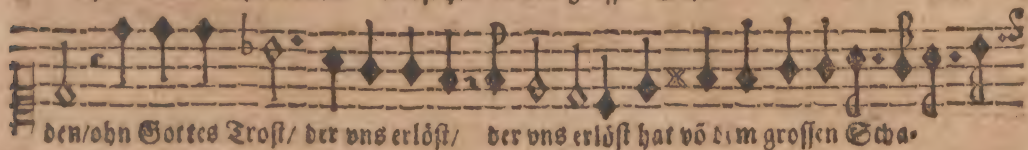 den/ohn Gottes Trost/ der vns erlöst/ der vns erlöst hat võ dem grossen Scha-